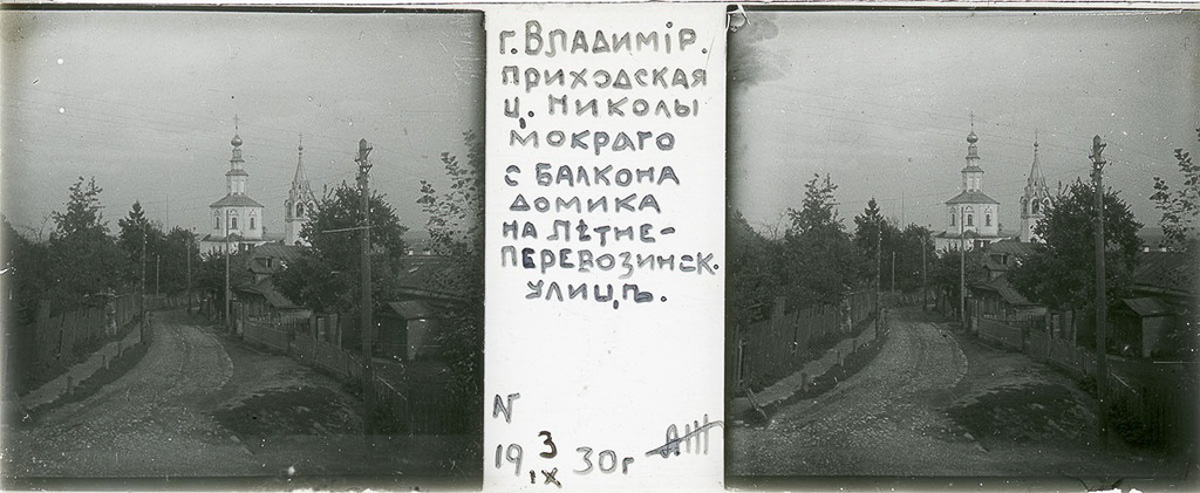 г. Владимiр.
приходская
ц. Николы
мокраго
с балкона
домика
на Лѣтне-
перевозинск.
улицѣ.
N
19 3/IX 30 г